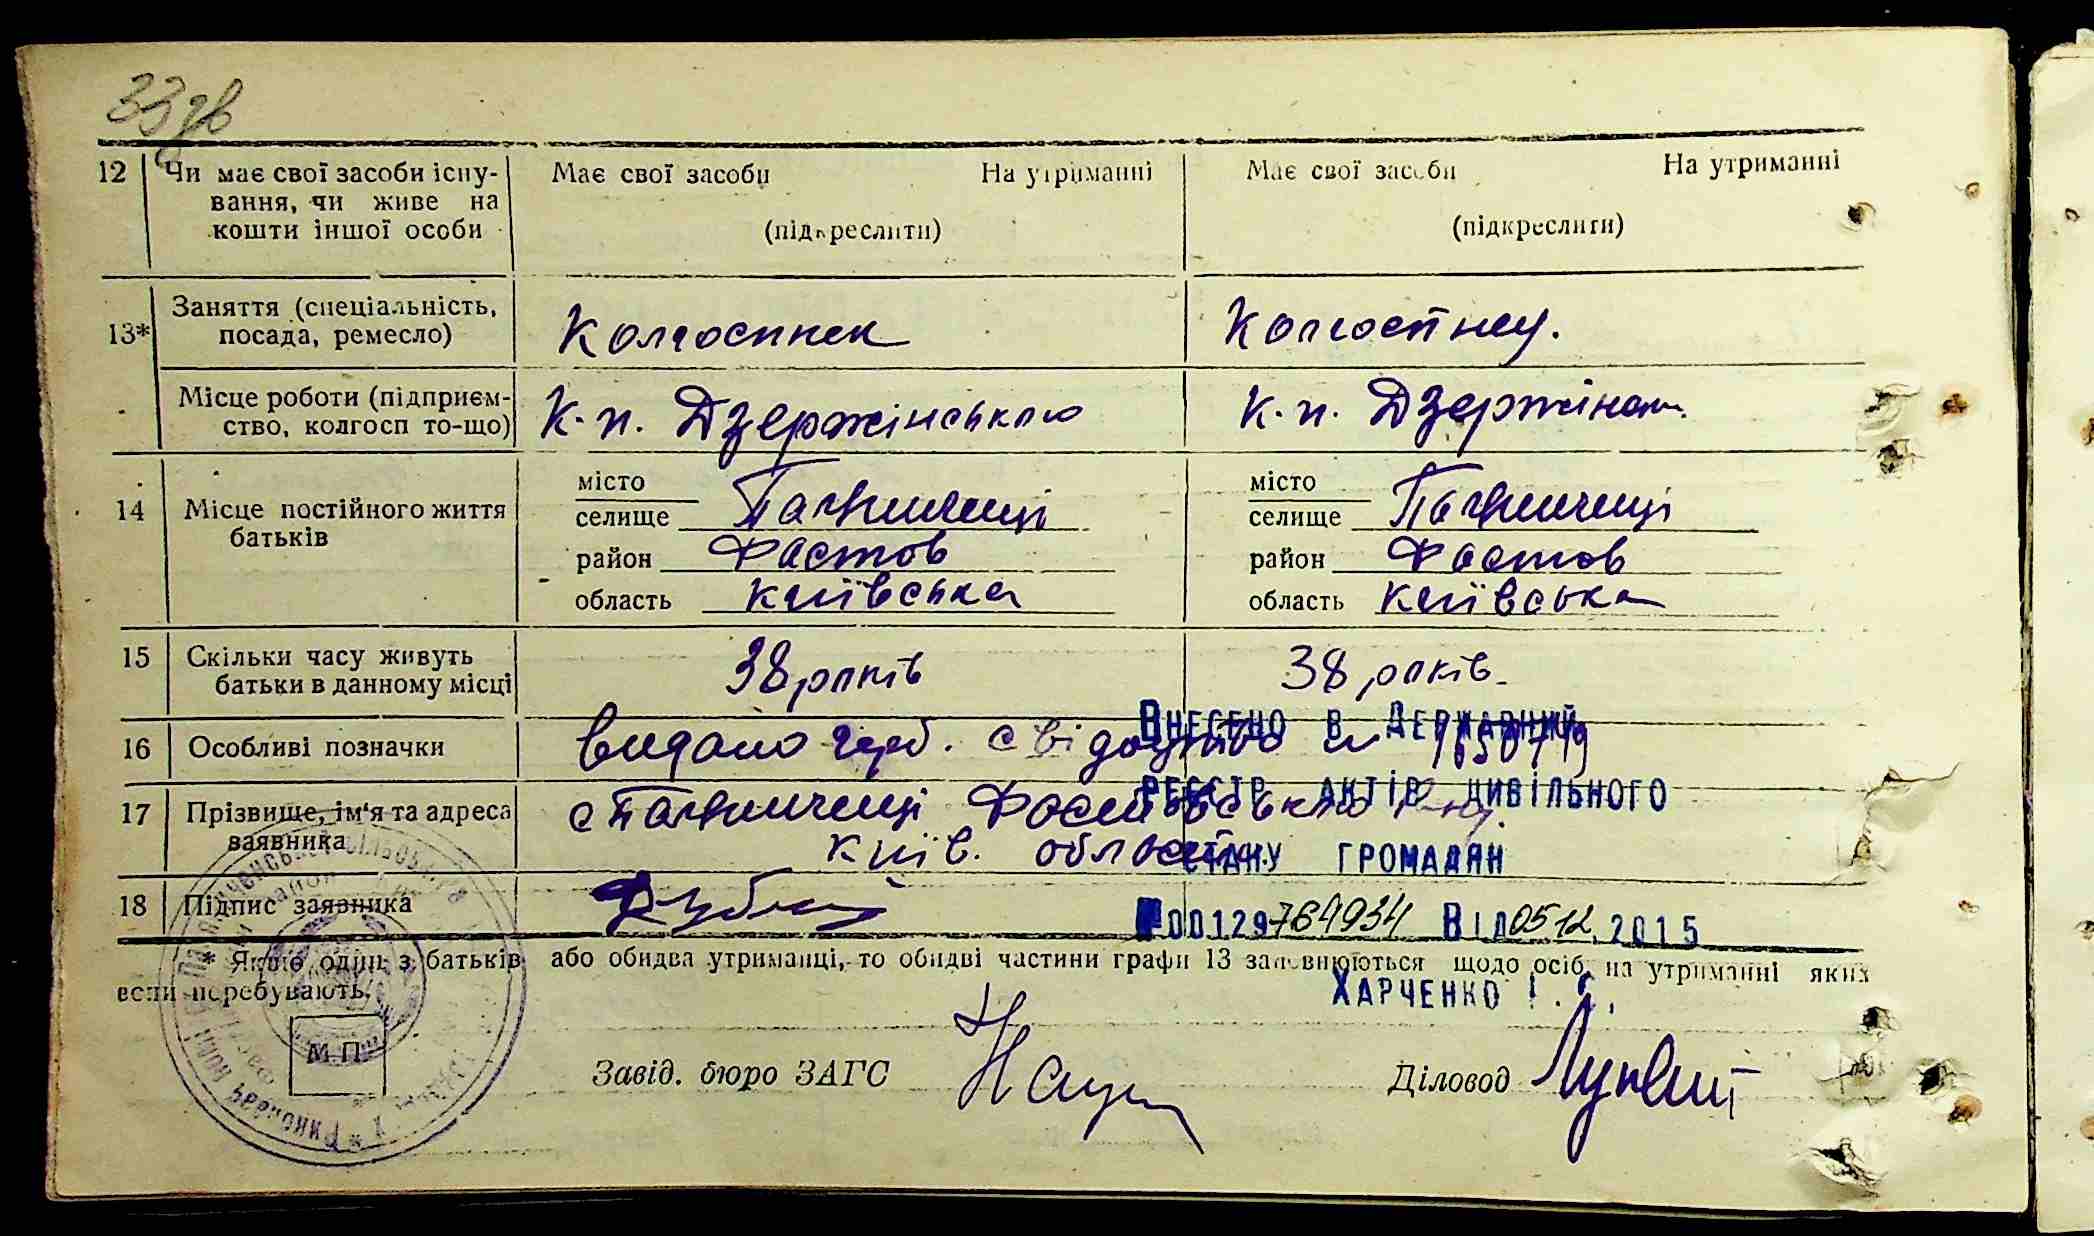 33 зв
12 Чи має свої засоби існу- Має свої засоби На утриманні Має свої засоби На утриманні
вання, чи живе на
кошти іншої особи (підкреслити) (підкреслити)
13* Заняття (спеціальність, посада, ремесло) Колгоспник Колгоспниц.
Місце роботи (підприєм- К-п. Дзержінського К-п. Дзержінськ.
ство, колгосп то-що)
14 Місце постійного життя батьків
місто місто
селище Паляничинці селище Паляничинці
район Фастов район Фастов
область Київська область Київська
15 Скільки часу живуть 38 років 38 років
батьки в данному місці
16 Особливі позначки видано герб. свідоцтво
Внесено в Державний
17 Прізвище, ім'я та адреса с Паляничинці Фастівського р-ну.
заявника Київ. області
реєстр актів цивільного
стану громадян
18 Підпис заявника
00129764934 Від 0512.2015
* Якщо один з батьків або обидва утриманці, то обидві частини графи 13 заповнюються щодо осіб, на утриманні яких
если перебувають.
Харченко І. С.
М.П.
Завід. бюро ЗАГС Діловод